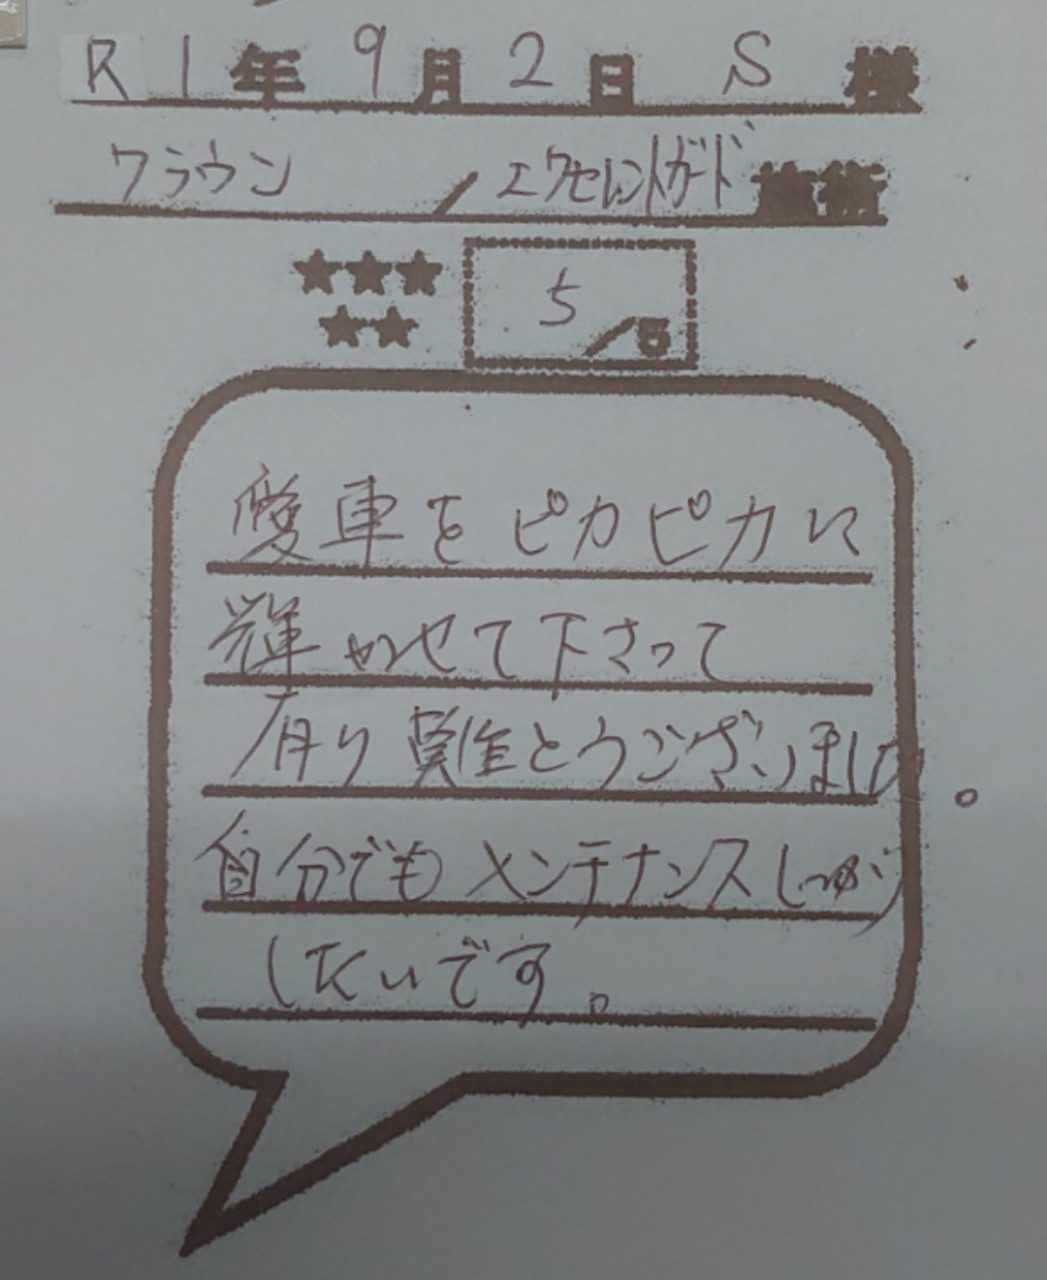 R1年9月2日 S 様
クラウン / エクセレントガード 施術
★★★ 5/5
★★
愛車をピカピカに
輝かせて下さって
有り難とうございました。
自分でもメンテナンスしっかり
したいです。